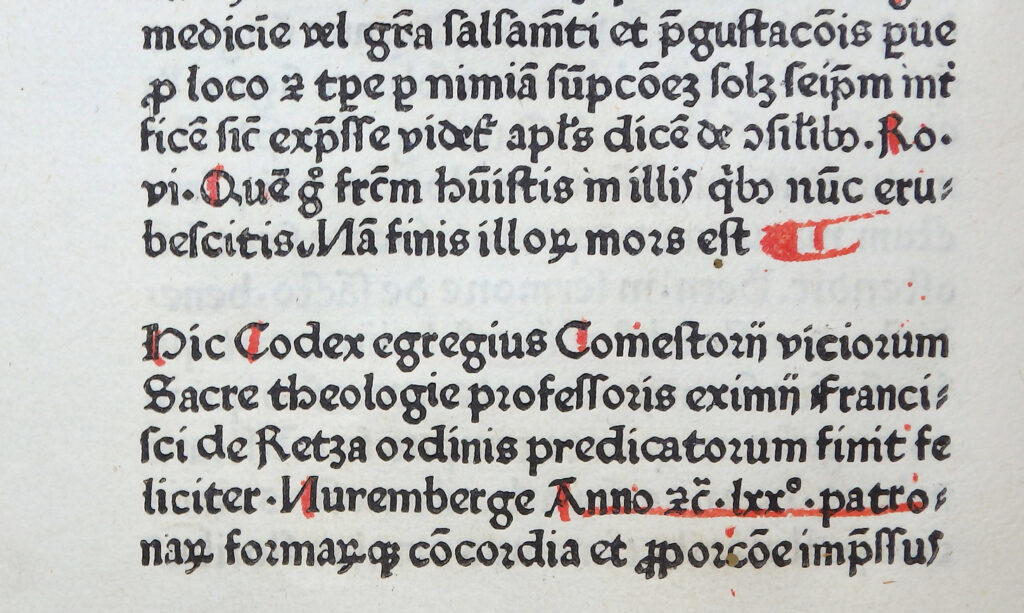 medicīe vel gr̄a salsam̄ti et p̄gustacōis ꝑue
ꝓ loco ⁊ tꝑe ꝑ nimiā sūpcōeꝫ solꝫ seip̄m int̄
ficē sic̄ exp̄sse videt᷑ apl̄s dicē de ꝯsil̄ibꝫ. Ro.
vi. Quē gͦ frc̄m hūistis in illis qͥbꝫ nūc eru⸗
bescitis. Nā finis illoꝝ mors est
Hic Codex egregius Comestorij viciorum
Sacre theologie professoris eximij Franci⸗
sci de Retza ordinis predicatorum finit fe
liciter. Nuremberge Anno ⁊c̄. lxxº. patro⸗
naꝝ formaꝝqꝫ cōcordia et ꝓporcōe imp̄ssus